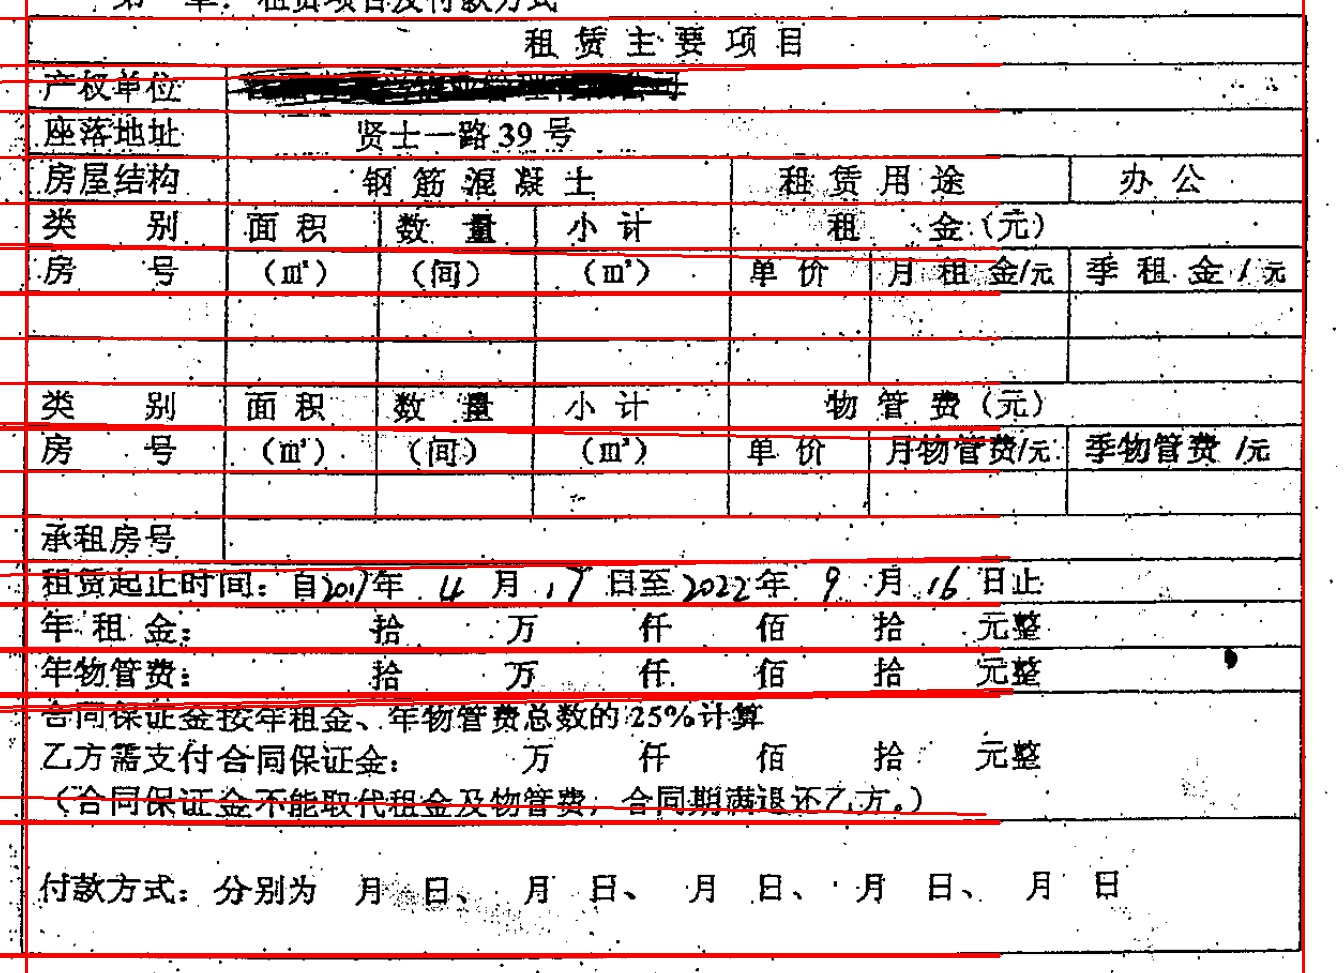 第一章：租赁项目及付款方式
租赁主要项目
产权单位
座落地址 贤士一路39号
房屋结构 钢筋混凝土 租赁用途 办公
类别 面积 数量 小计 租金（元）
房号 （㎡） （间） （㎡） 单价 月租金/元 季租金/元
类别 面积 数量 小计 物管费（元）
房号 （㎡） （间） （㎡） 单价 月物管费/元 季物管费/元
承租房号
租赁起止时间：自2017年4月17日至2022年9月16日止
年租金： 拾 万 仟 佰 拾 元整
年物管费： 拾 万 仟 佰 拾 元整
合同保证金按年租金、年物管费总数的25%计算
乙方需支付合同保证金： 万 仟 佰 拾 元整
（合同保证金不能取代租金及物管费，合同期满退还乙方。）
付款方式：分别为 月 日、 月 日、 月 日、 月 日、 月 日